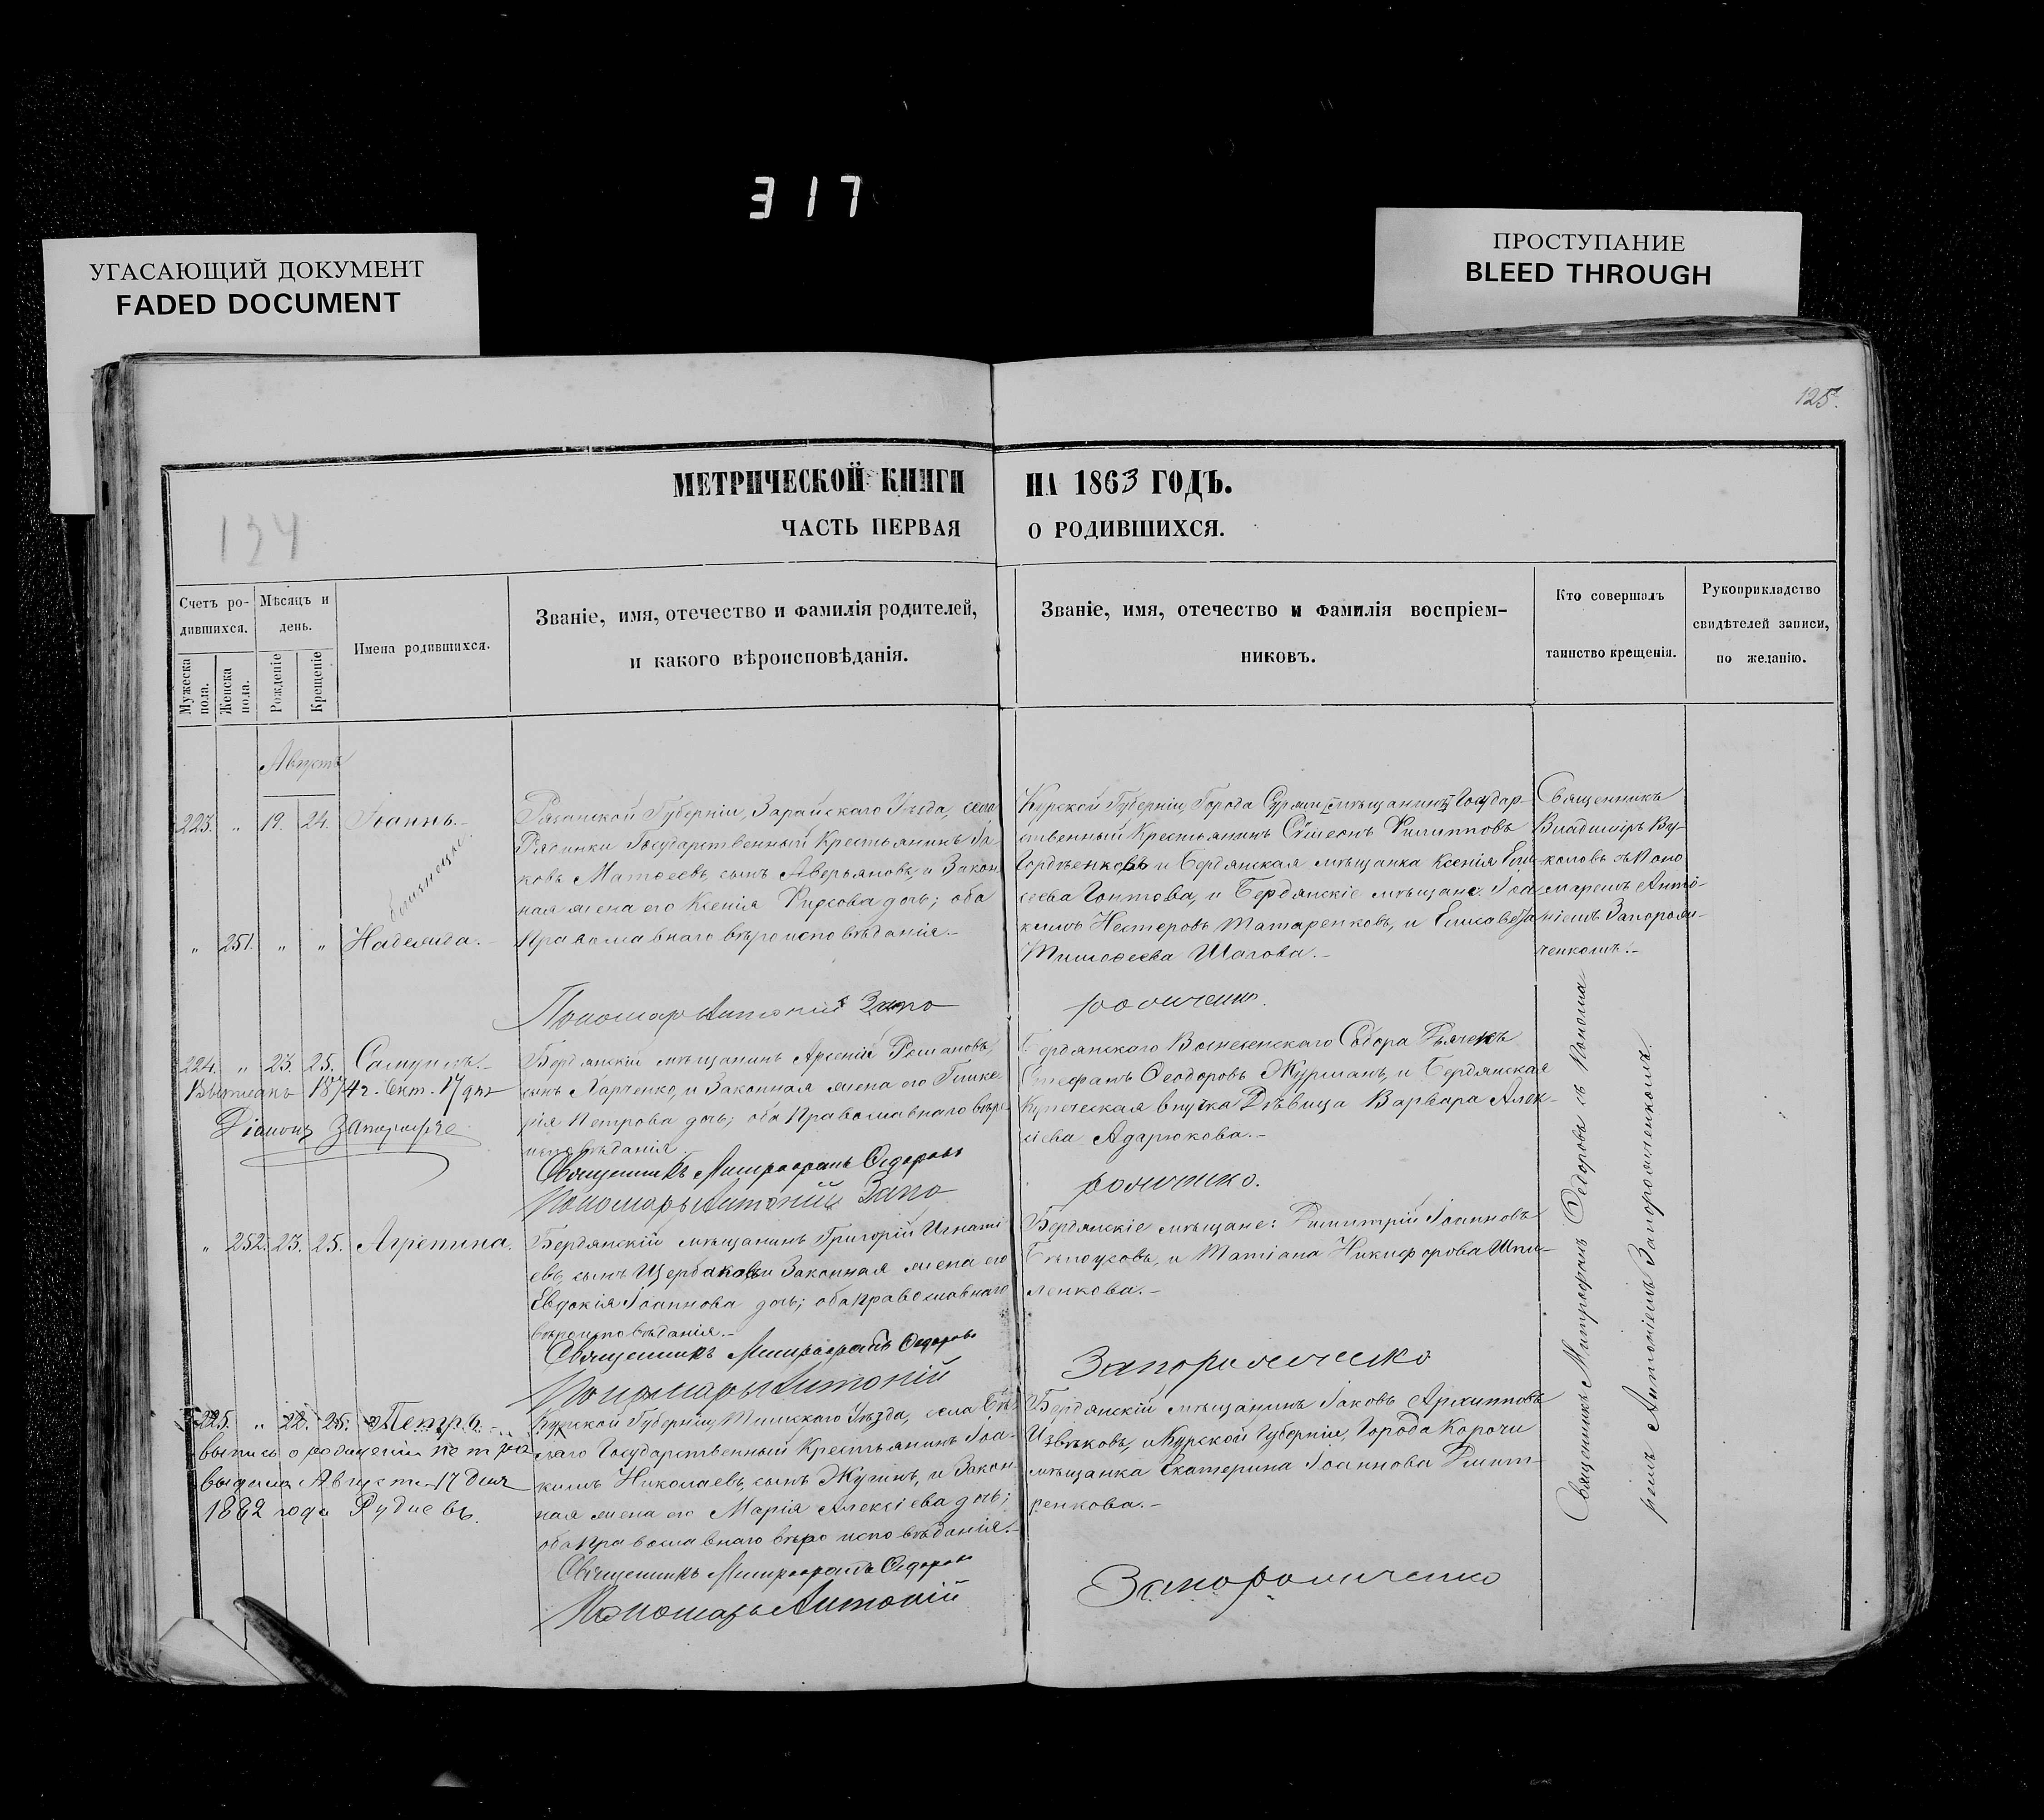 317
УГАСАЮЩИЙ ДОКУМЕНТ
FADED DOCUMENT
ПРОСТУПАНИЕ
BLEED THROUGH
125.
124
МЕТРИЧЕСКОЙ КНИГИ НА 1863 ГОДЪ.
ЧАСТЬ ПЕРВАЯ О РОДИВШИХСЯ.
Счетъ ро-
дившихся.
Мужеска
пола.
Женска
пола.
Мѣсяцъ и
день.
Рожденіе
Крещеніе
Имена родившихся.
Званіе, имя, отечество и фамилія родителей,
и какого вѣроисповѣданія.
Званіе, имя, отечество и фамилія воспріем-
никовъ.
Кто совершалъ
таинство крещенія.
Рукоприкладство
свидѣтелей записи,
по желанію.
Августъ
223. " 19. 24. Іоаннъ.-
близнецы.
" 251. " " Надежда.-
Рязанской Губерніи, Зарайскаго Уѣзда, села
Рядинки Государственный Крестьянинъ Іа-
ковъ Матѳеевъ, сынъ Аверьяновъ, и Закон-
ная жена его Ксенія Фирсова дочь; оба
Православнаго вѣроисповѣданія.-
Курской Губерніи, Города Государ-
ственный Крестьянинъ Сѵмеонъ Филипповъ
Гордѣенковъ и Бердянская мѣщанка Ксенія Ели-
сеева и Бердянскіе мѣщане: Іоа-
кимъ Несторовъ Татаренковъ, и Елисавета
Тимоѳеева Шахова.-
Священникъ
Владиміръ Ву-
коловъ съ Поно
маремъ Анто-
ніемъ Запорож-
ченкомъ.-
Пономарь Антоній Запо рожченко.
224. " 23. 25. Самуилъ.-
Выписанъ 1874 г. Окт. 17 дня
Діаконъ
Бердянскій мѣщанинъ Арсеній Романовъ,
сынъ Ларченко, и Законная жена его Глике-
рія Петрова дочь; оба Православнаго вѣро-
исповѣданія.
Бердянскаго Вознесенскаго Собора Дьячекъ
Стефанъ Ѳеодоровъ Журманъ, и Бердянская
Купеческая внучка Дѣвица Варвара Алек-
сіева Адарюкова.-
Священникъ Митрофанъ Ѳедоровъ
Пономарь Антоній Запо рожченко.
" 252. 23. 25. Агрепина.
Бердянскій мѣщанинъ Григорій Игнаті-
евъ, сынъ Щербаковъ и Законная жена его
Евдокія Іоаннова дочь; оба Православнаго
вѣроисповѣданія.-
Бердянскіе мѣщане: Димитрій Іоанновъ
Бѣлоусовъ, и Татіана Никифорова Шпи-
ленкова.-
Священникъ Митрофанъ Ѳедоровъ
Пономарь Антоній Запорожченко
225. " 22. 25. Петръ.-
выпись о рожденіи петра
выдана Августа 17 дня
1882 года Рудневъ.
Курской Губерніи, Тимскаго Уѣзда, села Бѣ-
лаго Государственный Крестьянинъ Іоа-
кимъ Николаевъ, сынъ Жучинъ, и Закон-
ная жена его Марія Алексіева дочь;
оба Православнаго вѣроисповѣданія.-
Бердянскій мѣщанинъ Іаковъ Архиповъ
Извѣковъ, и Курской Губерніи, Города Корочи
мѣщанка Екатерина Іоаннова Дмит-
ренкова.-
Священникъ Митрофанъ Ѳедоровъ съ Понома
ремъ Антоніемъ Запорожченкомъ.
Священникъ Митрофанъ Ѳедоровъ
Пономарь Антоній Запорожченко